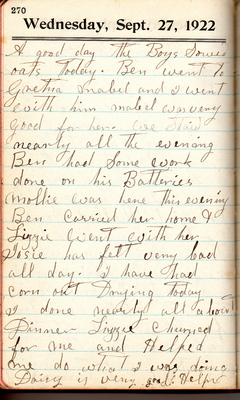 270
Wednesday, Sept. 27, 1922
A good day the Boys Sowed
oats today. Ben went to
Gretna mabel and I went
with him mabel was very
good for her. we Staid
nearly all the evening
Ben had Some work
done on his Batteries
mollie was here this evening
Ben Carried her home &
Lizzie went with her
Josie has felt very bad
all day. I have had
corn out Drying today
I done nearly all about
Dinner Lizzie Churned
for me and Helped
me do what I was doing
Daisy is very good Help